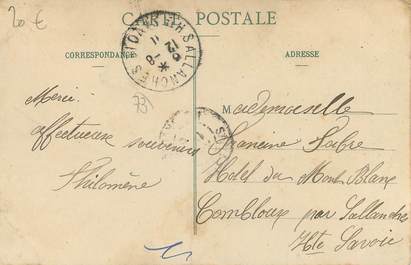 20 €
CARTE POSTALE
CORRESPONDANCE
ADRESSE
SALLANCHES
8-12
73
Merci.
affectueux souvenirs
Philomène
Mademoiselle
Francine Fabre
Hotel du Mont Blanc
Combloux par Sallanches
Hte Savoie